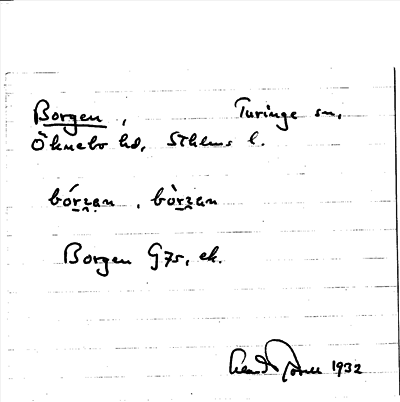 Borgen, Turinge sn,
Öknebo hd, Sthlms l.
bórzan, bòrzan
Borgen G75, ek.
1932